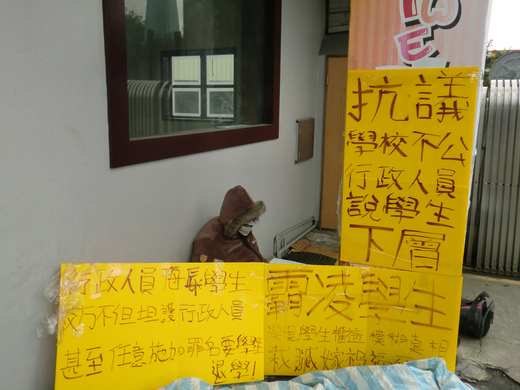 抗議
學校不公
行政人員
說學生
下層
行政人員侮辱學生
校方不但坦護行政人員
甚至任意施加罪名要學生
退學!
霸凌學生
漠視學生權益 模糊真相
栽贓嫁禍